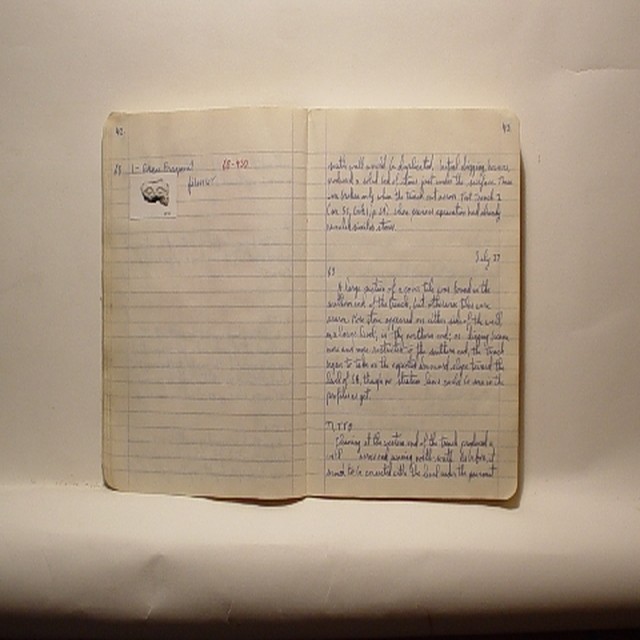 42
1 - Bronze Fragment 68-450
43
north wall would be duplicated. Initial digging however,
produced a solid bed of stones just under the surface. These
are broken only when the trench cut across Test Trench 2
where previous excavation had already
revealed similar stones.
July 27
A large portion of a cover tile was found in the
southern end of the trench, but otherwise tiles were
scarce. More stone appeared on either side of the wall
on a lower level, in the northern end; as digging became
more and more restricted to the southern end, the trench
began to take on the expected downward slope toward the
level of 58, though no stratum lines could be seen in the
profiles as yet.
TT 58
Cleaning at the western end of the trench produced a
wall and running north-south. As before, it
to be connected with the level under the pavement